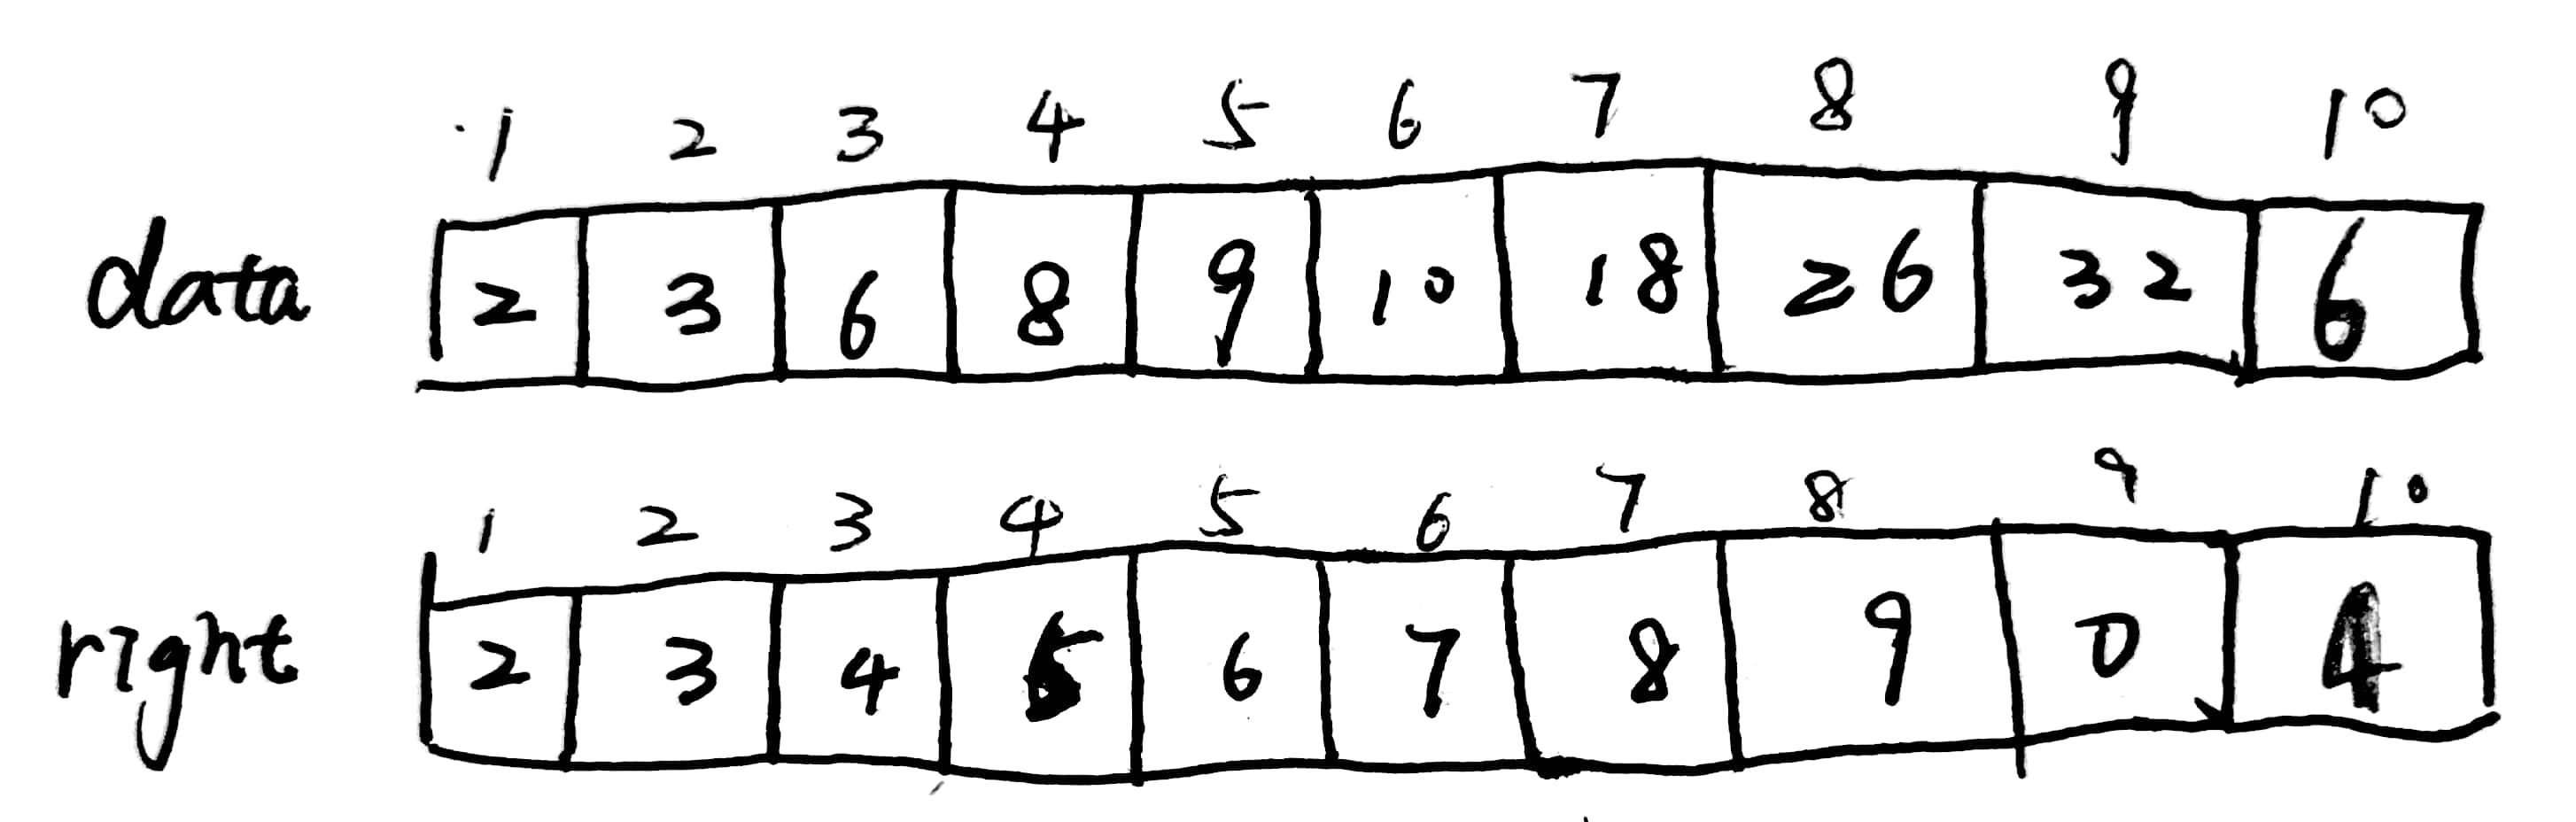 1 2 3 4 5 6 7 8 9 10
data 2 3 6 8 9 10 18 26 32 6
1 2 3 4 5 6 7 8 9 10
right 2 3 4 5 6 7 8 9 0 4